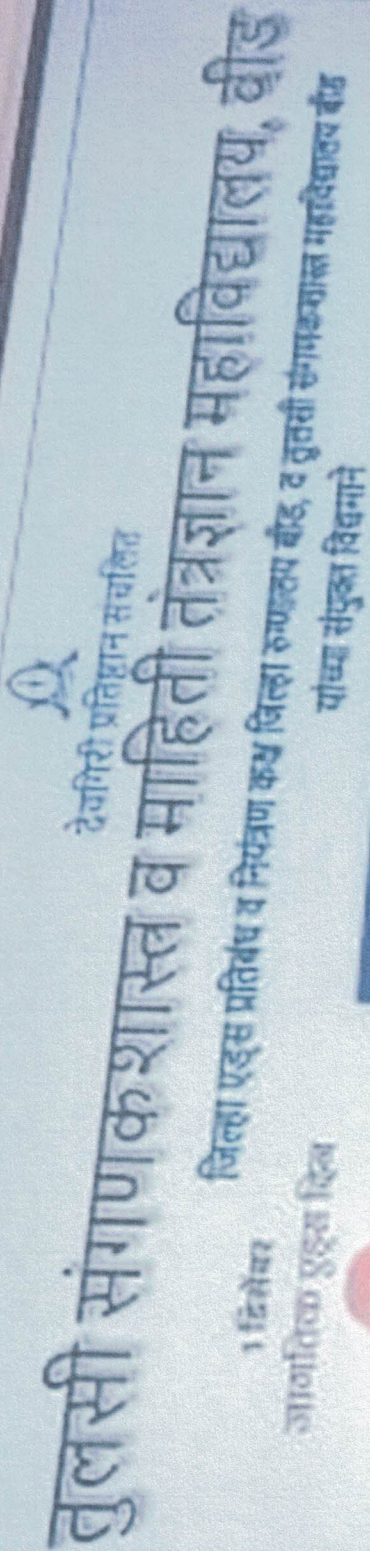 देवगिरी प्रतिष्ठान संचलित
तुलसी संगणकशास्त्र व माहिती तंत्रज्ञान महाविद्यालय, बीड
जिल्हा एड्स प्रतिबंध व नियंत्रण कक्ष जिल्हा रुग्णालय बीड, व तुलसी संगणकशास्त्र महाविद्यालय बीड
यांच्या संयुक्त विद्यमाने
1 डिसेंबर
जागतिक एड्स दिन